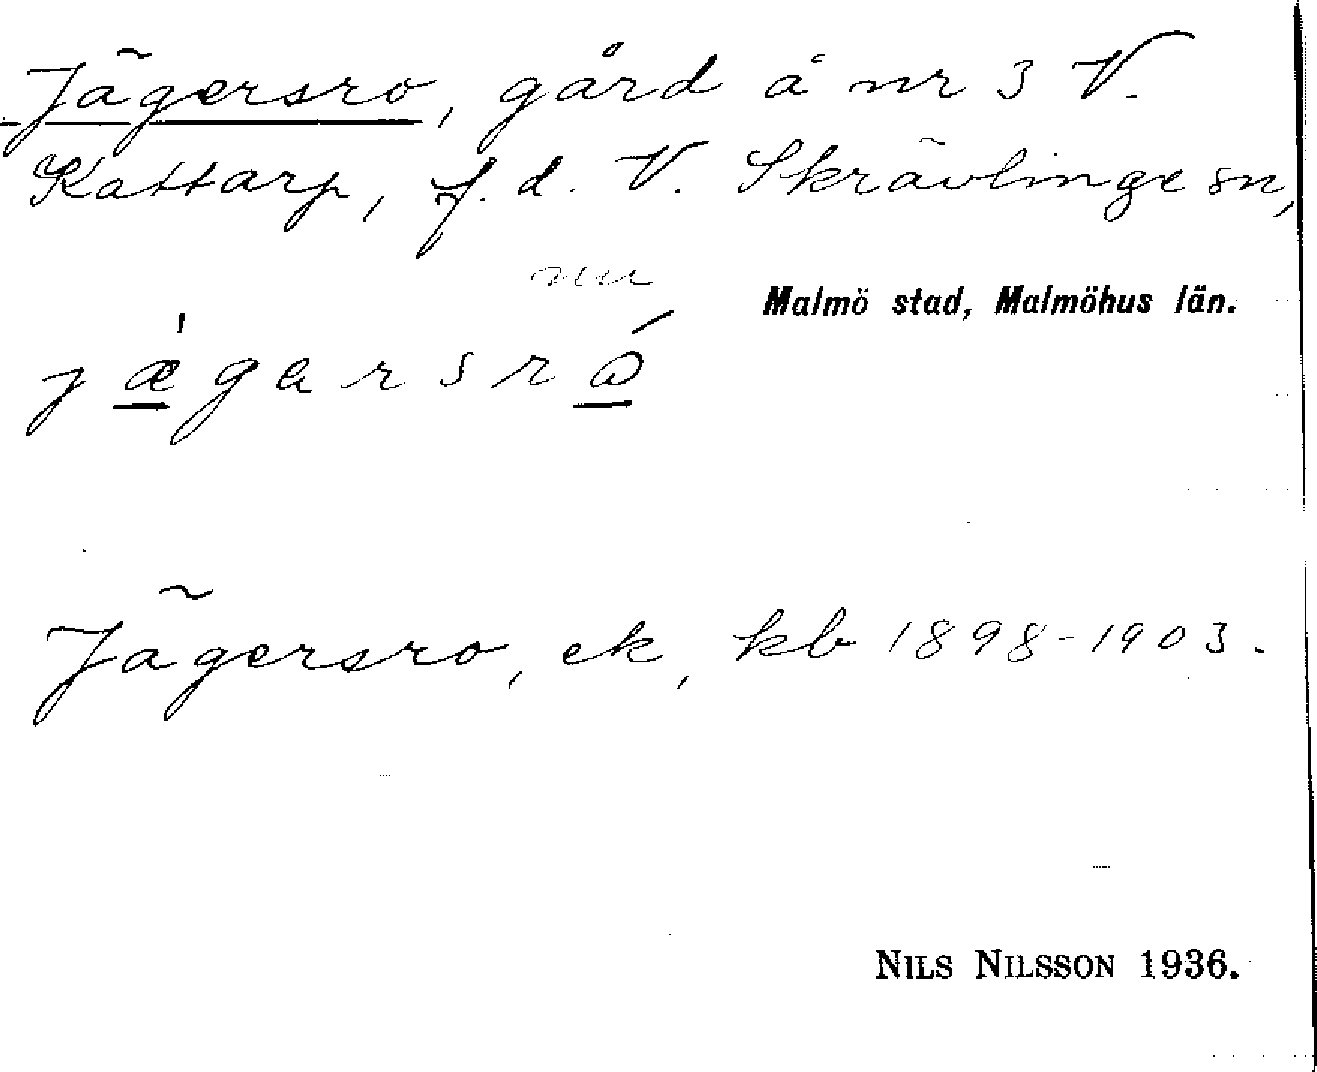 Jägersro, gård å nr 3 V.
Kattarp, f.d. V. Skrävlinge sn,
nu
Malmö stad, Malmöhus län.
jægarsró
Jägersro, ek, kb 1898-1903.
NILS NILSSON 1936.